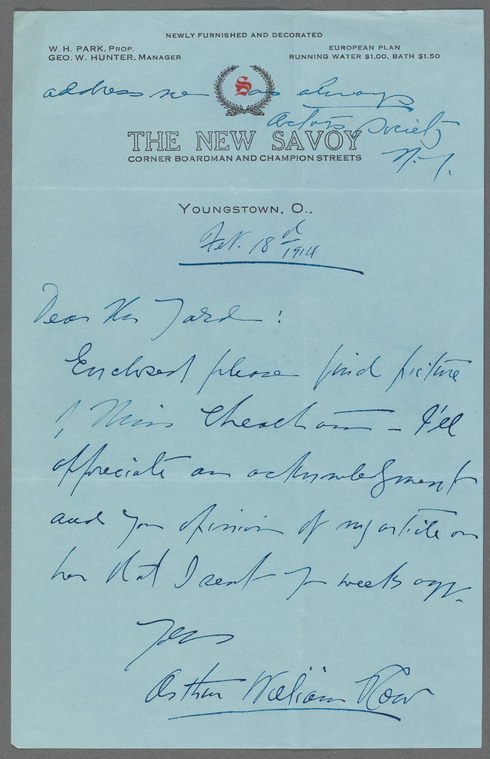 NEWLY FURNISHED AND DECORATED
W. H. PARK, PROP.
GEO. W. HUNTER, MANAGER
EUROPEAN PLAN
RUNNING WATER $1.00, BATH $1.50
S
address me as always
Actors Society
N.Y.
THE NEW SAVOY
CORNER BOARDMAN AND CHAMPION STREETS
YOUNGSTOWN, O.,
Feb. 18
1914
Dear :
Enclosed please find picture
of Miss Cheatham - I'll
appreciate an acknowledgment
and your opinion of my article on
her that I sent weeks ago.
Yours
Arthur William Row